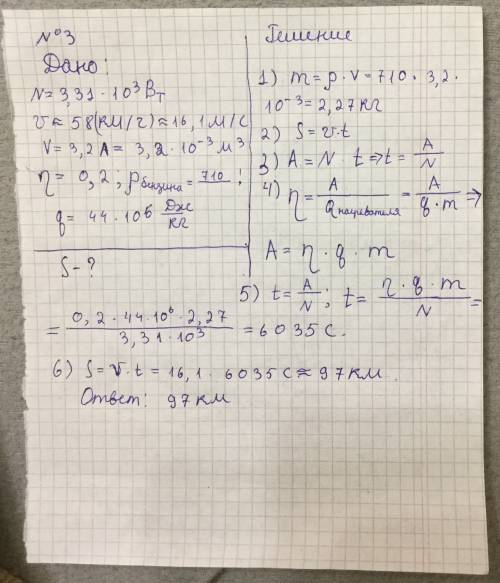 №3
Дано:
N = 3,31 · 10³ Вт
v ≈ 58(км/ч) ≈ 16,1 м/с
V = 3,2 л = 3,2 · 10⁻³ м³
η = 0,2; ρ бензина = 710 ;
q = 44 · 10⁶ Дж/кг
S - ?
Решение
1) m = ρ · V = 710 · 3,2 ·
10⁻³ = 2,27 кг
2) S = v · t
3) A = N · t ⇒ t = A/N
4) η = A/Q нагревателя = A/(q · m) ⇒
A = η · q · m
5) t = A/N; t = (η · q · m)/N =
= (0,2 · 44 · 10⁶ · 2,27)/(3,31 · 10³) = 6035 с.
6) S = v · t = 16,1 · 6035 с ≈ 97 км.
Ответ: 97 км